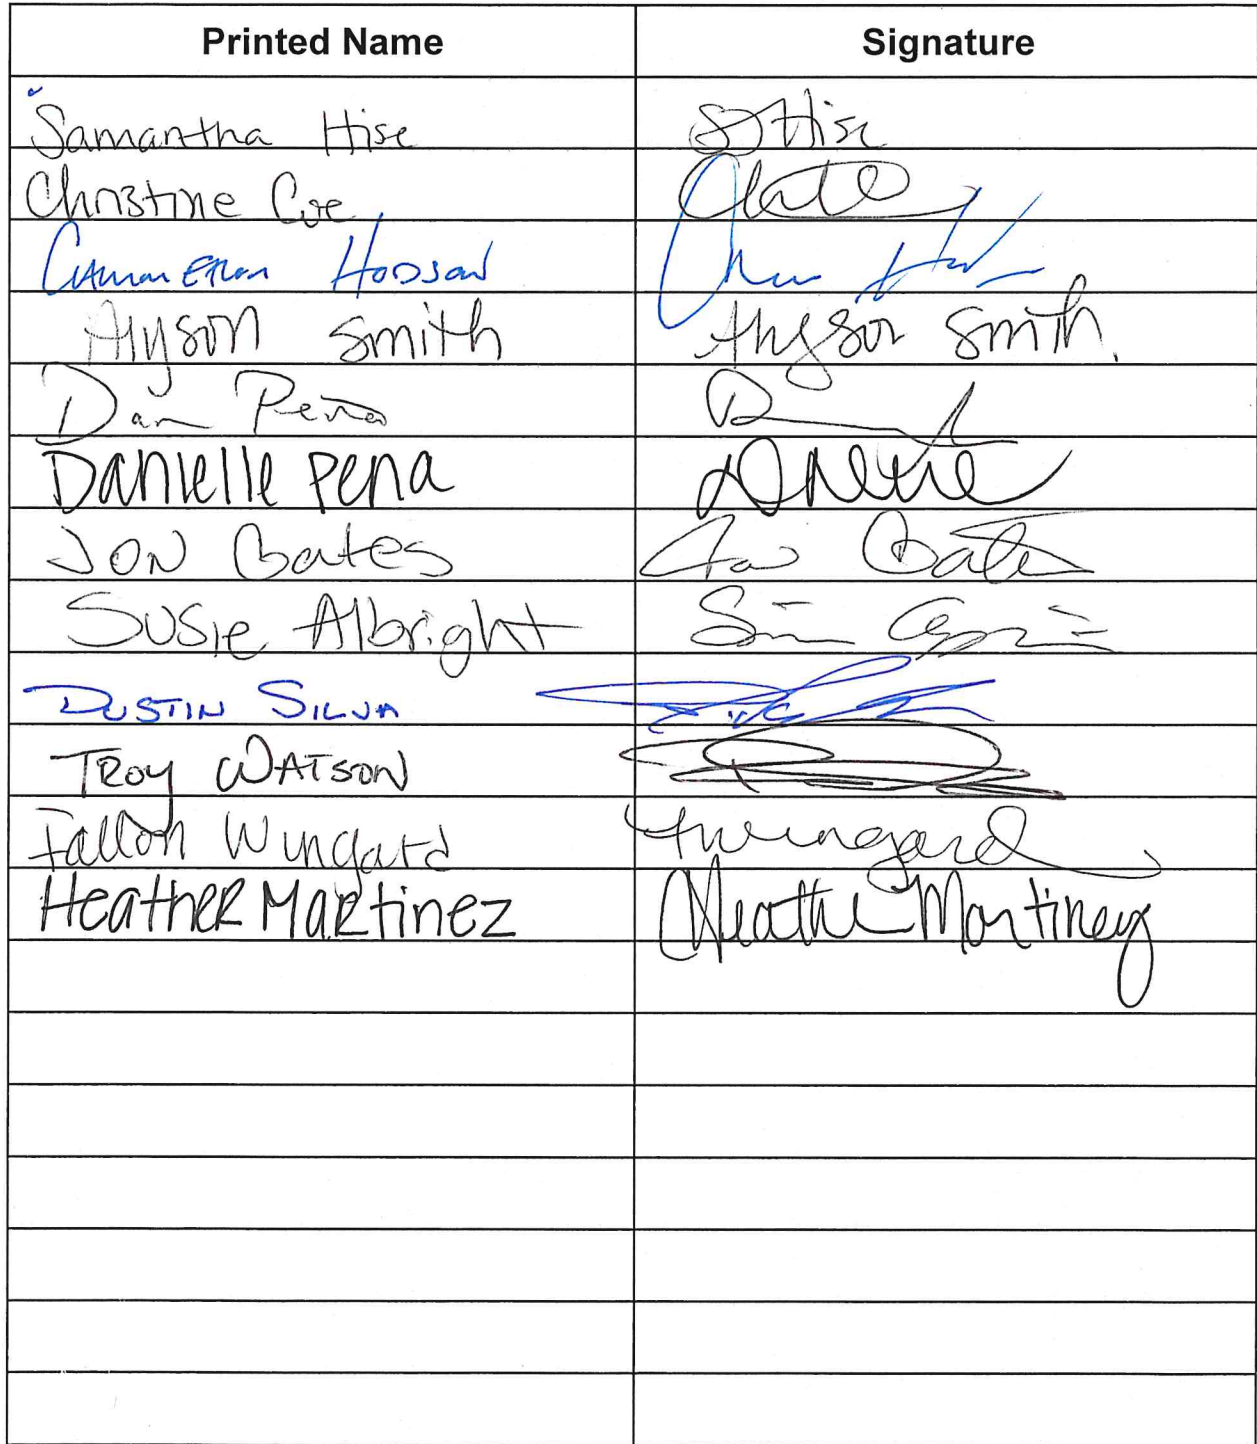 Printed Name Signature
Samantha Hise SHise
Christine Coe
Hodson
Alyson Smith Alyson Smith.
Dan Peña
Danielle Pena
Jon Bates Jon Bates
Susie Albright
Dustin Silva
Troy Watson
Fallon Wyngard
Heather Martinez Heather Martinez